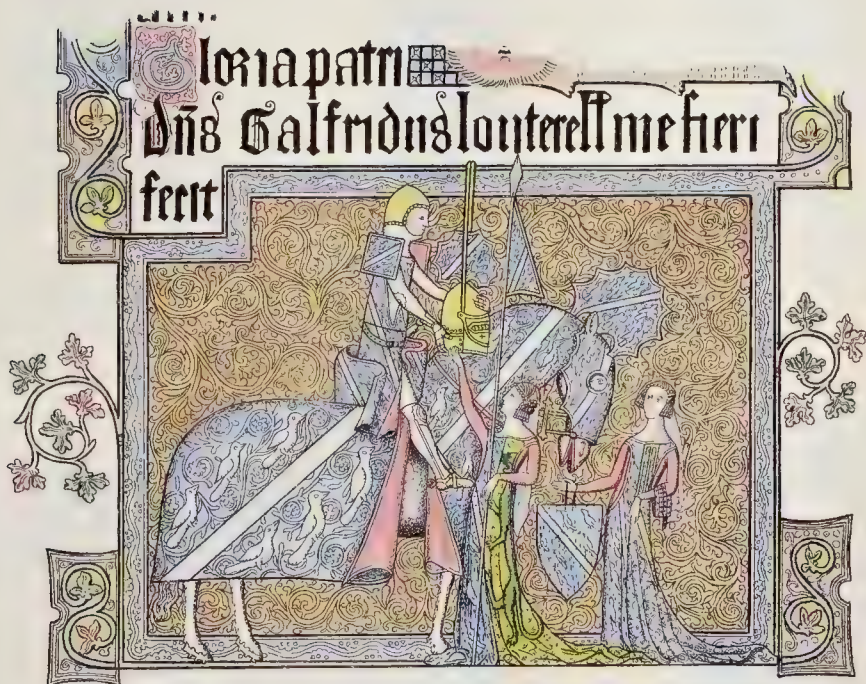 Gloria patri
Dñs Galfridus louterell me fieri
fecit